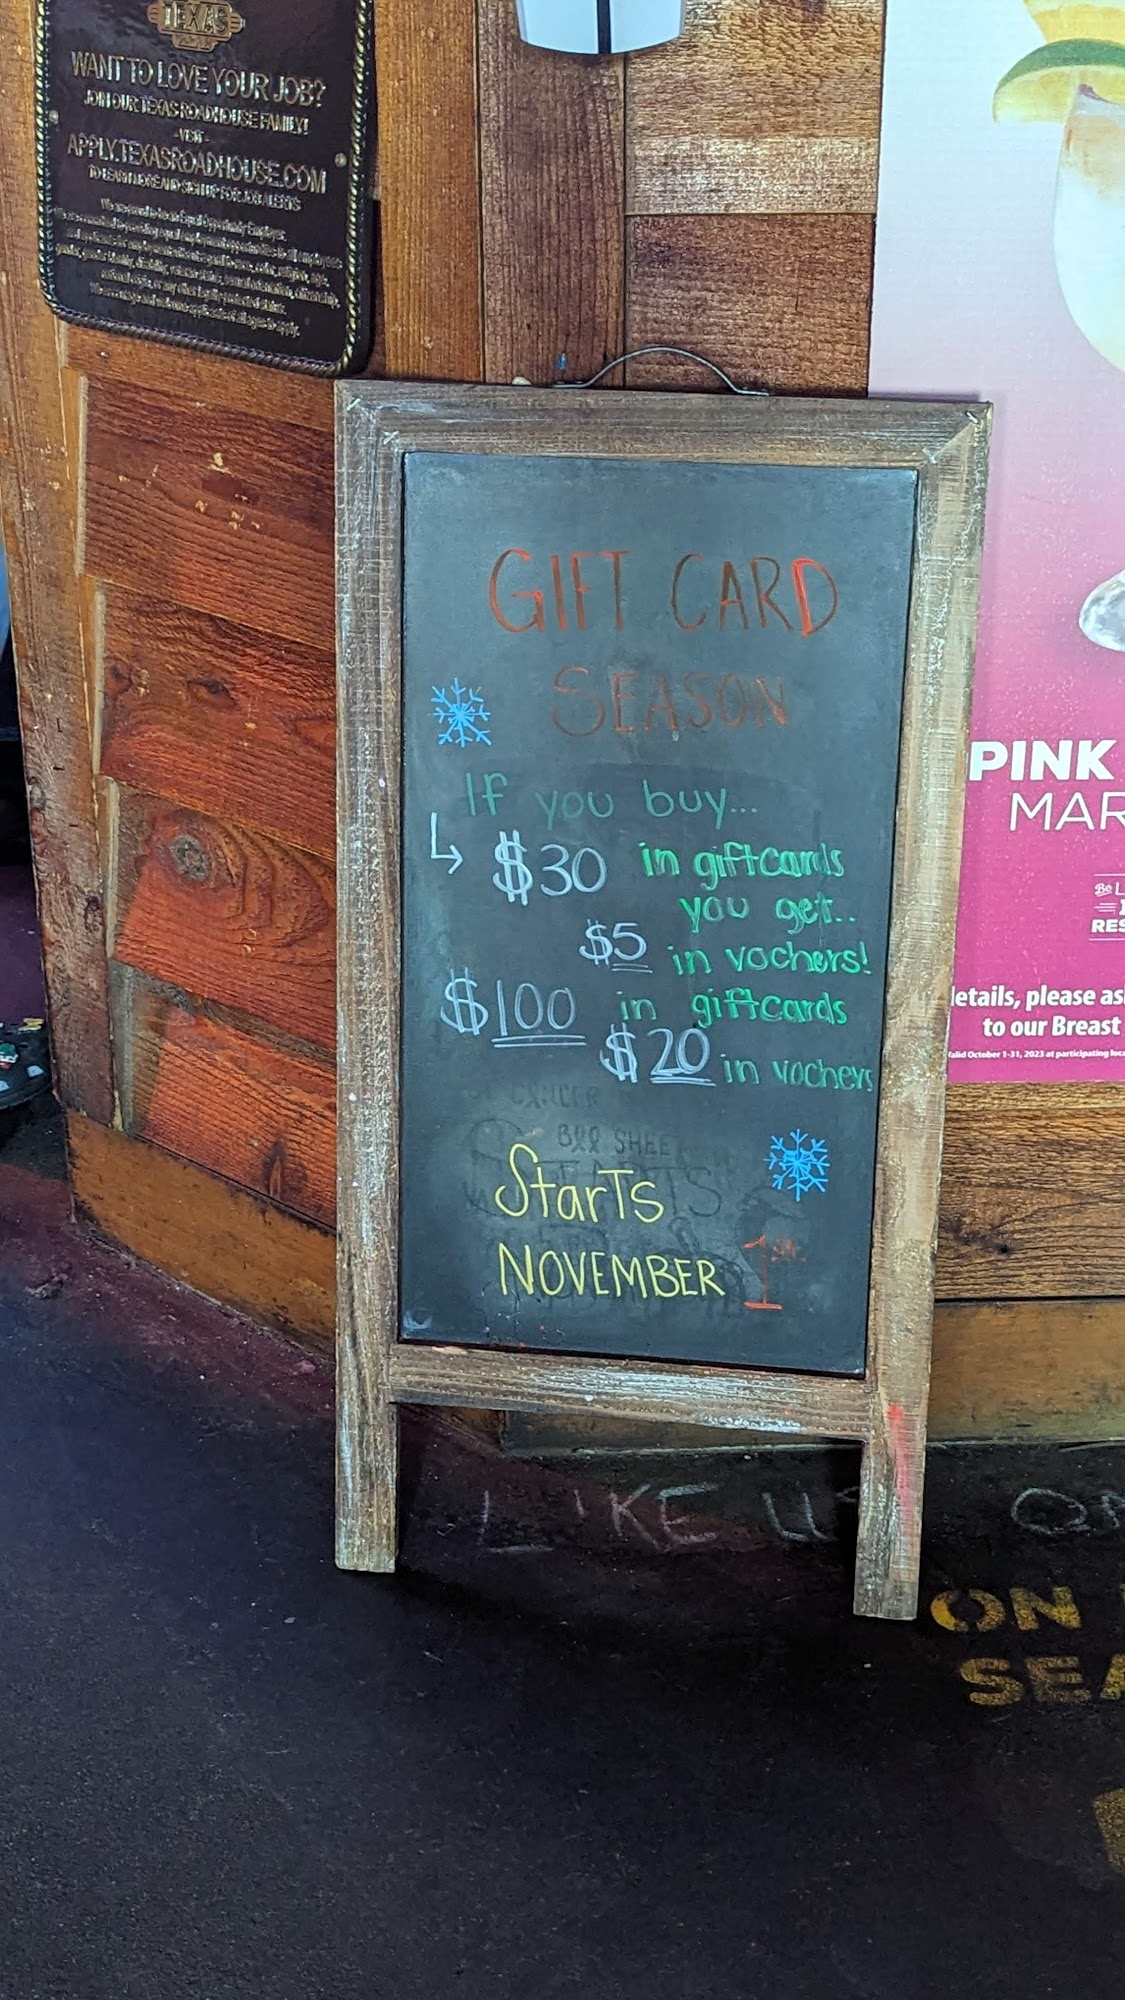 TEXAS
WANT TO LOVE YOUR JOB?
JOIN OUR TEXAS ROADHOUSE FAMILY!
- VISIT -
APPLY.TEXASROADHOUSE.COM
TO LEARN MORE AND SIGN UP FOR JOB ALERTS
We are proud to be an Equal Opportunity Employer.
GIFT CARD
SEASON
If you buy...
$30 in giftcards
you get..
$5 in vochers!
$100 in giftcards
$20 in vochers
CANCER
SHEE
Starts
NOVEMBER 1st
PINK
MAR
Be L
RES
details, please as
to our Breast
Valid October 1-31, 2023 at participating loca
LIKE US ON
ON
SEA